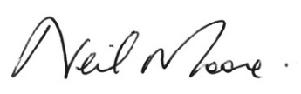 Neil Moore.